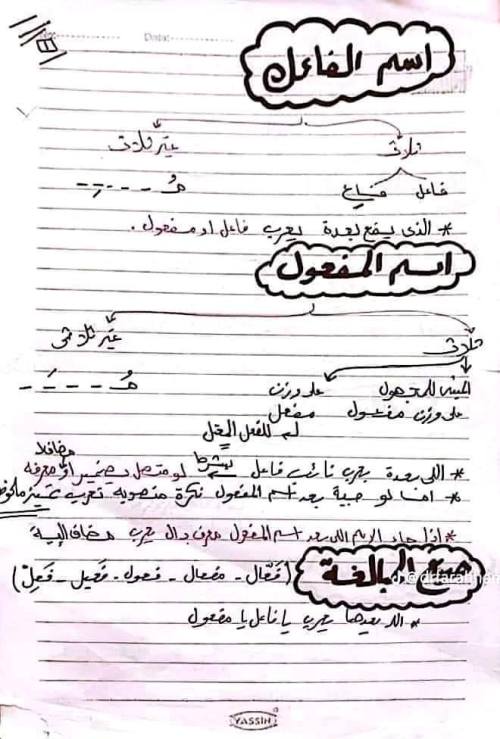 Date:
اسم الفاعل
ثلاثى غير ثلاثى
فاعل مُـ - - ـِ -
* الذى يقع بعدة يعرب فاعل او مفعول .
اسم المفعول
ثلاثى غير ثلاثى
المبنى للمجهول على وزن مُـ - - ـَ -
على وزن مفعول مفعل
للفعل المعتل
* اللى بعدة يعرب نائب فاعل بشرط لو متصل بضمير او معرفه
مضافلا
* اما لو جية بعد اسم المفعول نكرة منصوبة تعرب تمييز
* اذا جاء الاسم اللى بعد اسم المفعول معرف بال يعرب مضاف الية
صيغ المبالغة (فَعّال - مفعال - فعول - فَعيل - فَعِل)
* اللى بعدها يعرب يا فاعل يا مفعول
YASSIN